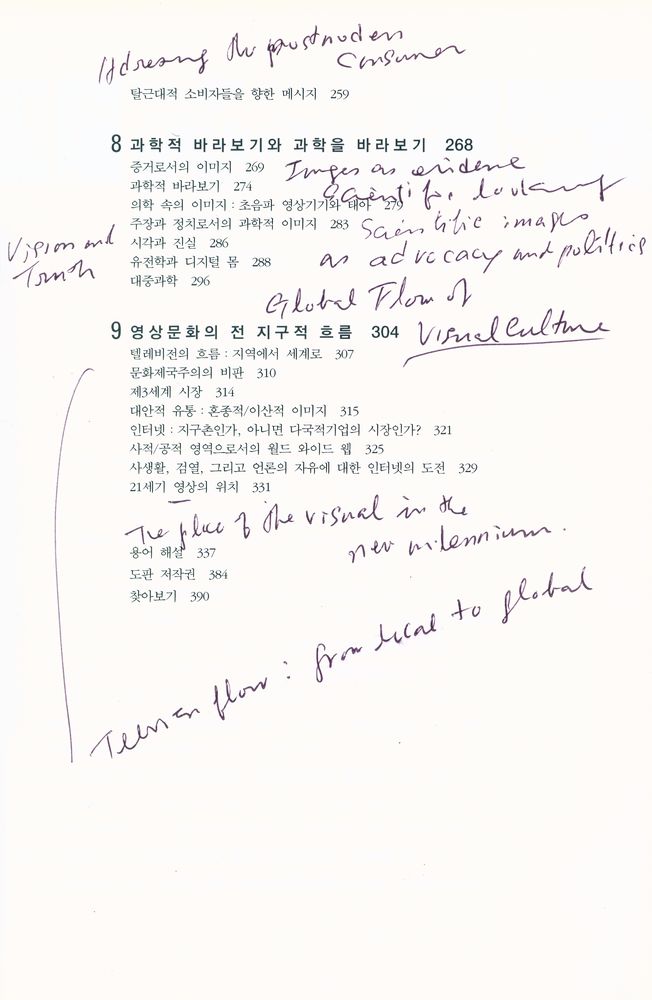 Adressing the postmodern
Consumer
탈근대적 소비자들을 향한 메시지 259
8 과학적 바라보기와 과학을 바라보기 268
증거로서의 이미지 269 Images as evidence
과학적 바라보기 274 Scientific looking
의학 속의 이미지 : 초음파 영상기기와 태아 279
주장과 정치로서의 과학적 이미지 283 Scientific images
Vision and
시각과 진실 286
Truth
유전학과 디지털 몸 288 as advocacy and politics
대중과학 296
Global Flow of
9 영상문화의 전 지구적 흐름 304 Visual Culture
텔레비전의 흐름 : 지역에서 세계로 307
문화제국주의의 비판 310
제3세계 시장 314
대안적 유통 : 혼종적/이산적 이미지 315
인터넷 : 지구촌인가, 아니면 다국적기업의 시장인가? 321
사적/공적 영역으로서의 월드 와이드 웹 325
사생활, 검열, 그리고 언론의 자유에 대한 인터넷의 도전 329
21세기 영상의 위치 331
The place of the visual in the
new milennium.
용어 해설 337
도판 저작권 384
찾아보기 390
flow : from local to global